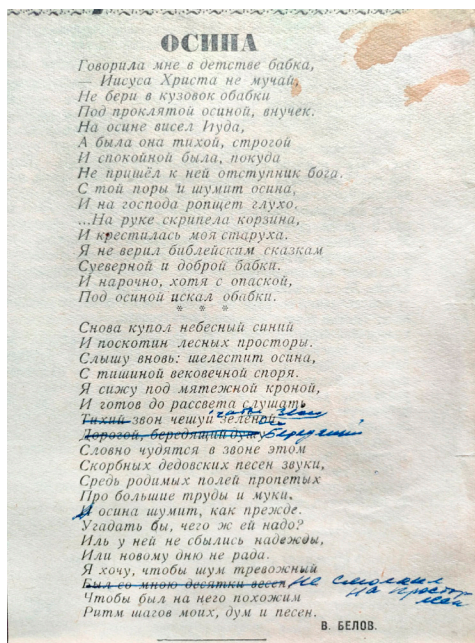 ОСИНА
Говорила мне в детстве бабка,
— Иисуса Христа не мучай,
Не бери в кузовок обабки
Под проклятой осиной, внучек.
На осине висел Иуда,
А была она тихой, строгой
И спокойной была, покуда
Не пришёл к ней отступник бога.
С той поры и шумит осина,
И на господа ропщет глухо.
...На руке скрипела корзина,
И крестилась моя старуха.
Я не верил библейским сказкам
Суеверной и доброй бабки.
И нарочно, хотя с опаской,
Под осиной искал обабки.
* * *
Снова купол небесный синий
И поскотин лесных просторы.
Слышу вновь: шелестит осина,
С тишиной вековечной споря.
Я сижу под мятежной кроной,
И готов до рассвета слушать
Тихий звон чешуи зелёной
Дорогой, бередящий душу бередящий
Словно чудятся в звоне этом
Скорбных дедовских песен звуки,
Средь родимых полей пропетых
Про большие труды и муки.
И осина шумит, как прежде.
Угадать бы, чего ж ей надо?
Иль у ней не сбылись надежды,
Или новому дню не рада.
Я хочу, чтобы шум тревожный
Был со мною десятки весен, не смолкал
на простор
Чтобы был на него похожим
Ритм шагов моих, дум и песен.
В. БЕЛОВ.